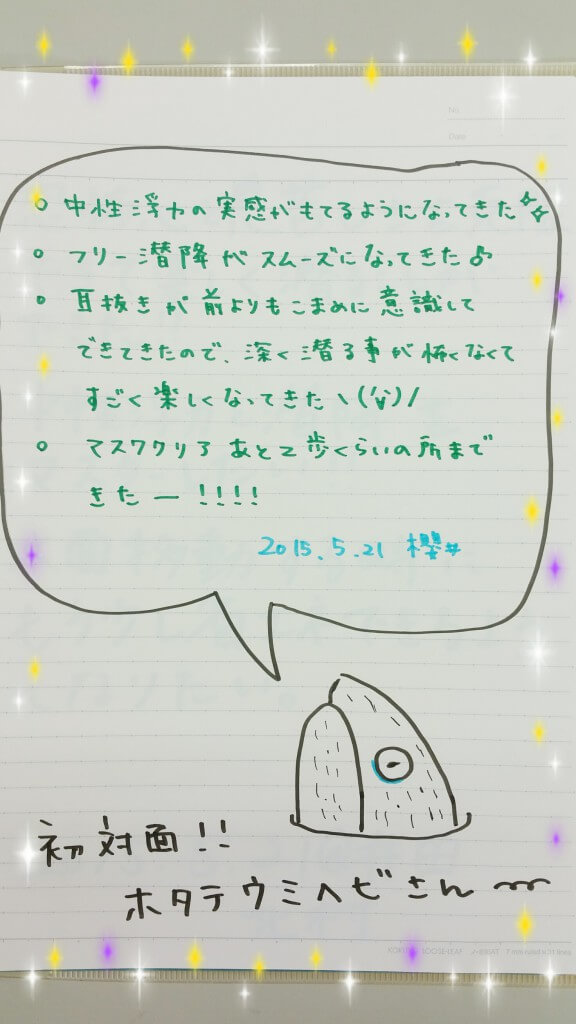 No.
Date
○ 中性浮力の実感がもてるようになってきた
○ フリー潜降がスムーズになってきた♪
○ 耳抜きが前よりもこまめに意識して
できてきたので、深く潜る事が怖くなくて
すごく楽しくなってきた\(´∀`)/
○ マスククリアあと2歩くらいの所まで
きたー!!!!
2015.5.21 櫻井
初対面!!
ホタテウミヘビさん
KOKUYO LOOSE-LEAF ノ-836AT 7 mm ruled × 31 lines